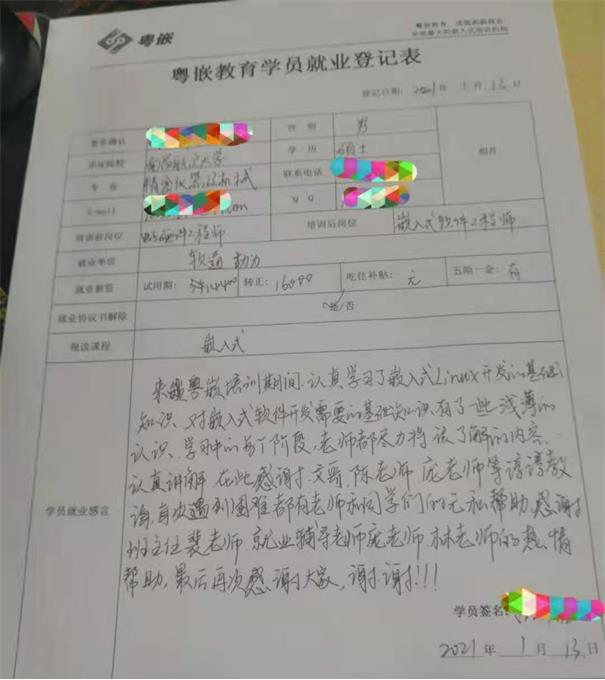 粤嵌
粤嵌教育学员就业登记表
登记日期: 2021年 1月 13日
签名确认 性别 男
毕业院校 南昌航空大学 学历 硕士 照片
专业 精密仪器及机械 联系电话
E-mail QQ
培训前岗位 硬件工程师 培训后岗位 嵌入式软件工程师
就业单位 软通动力
就业薪资 试用期: 14400 转正: 16000 吃住补贴: 无 五险一金: 有
就业协议书解除 是/否
现读课程 嵌入式
来粤嵌培训期间,认真学习了嵌入式Linux开发的基础
知识,对嵌入式软件开发需要的基础知识有了些浅薄的
认识,学习中的每个阶段,老师都尽力将该了解的内容,
认真讲解,在此感谢文老师,陈老师,庞老师等谆谆教
诲,每次遇到困难都有老师和同学们的无私帮助,感谢
学员就业感言
班主任裴老师,就业辅导老师庞老师,林老师的热情
帮助,最后再次感谢大家,谢谢!!!
学员签名:
2021年 1月 13日